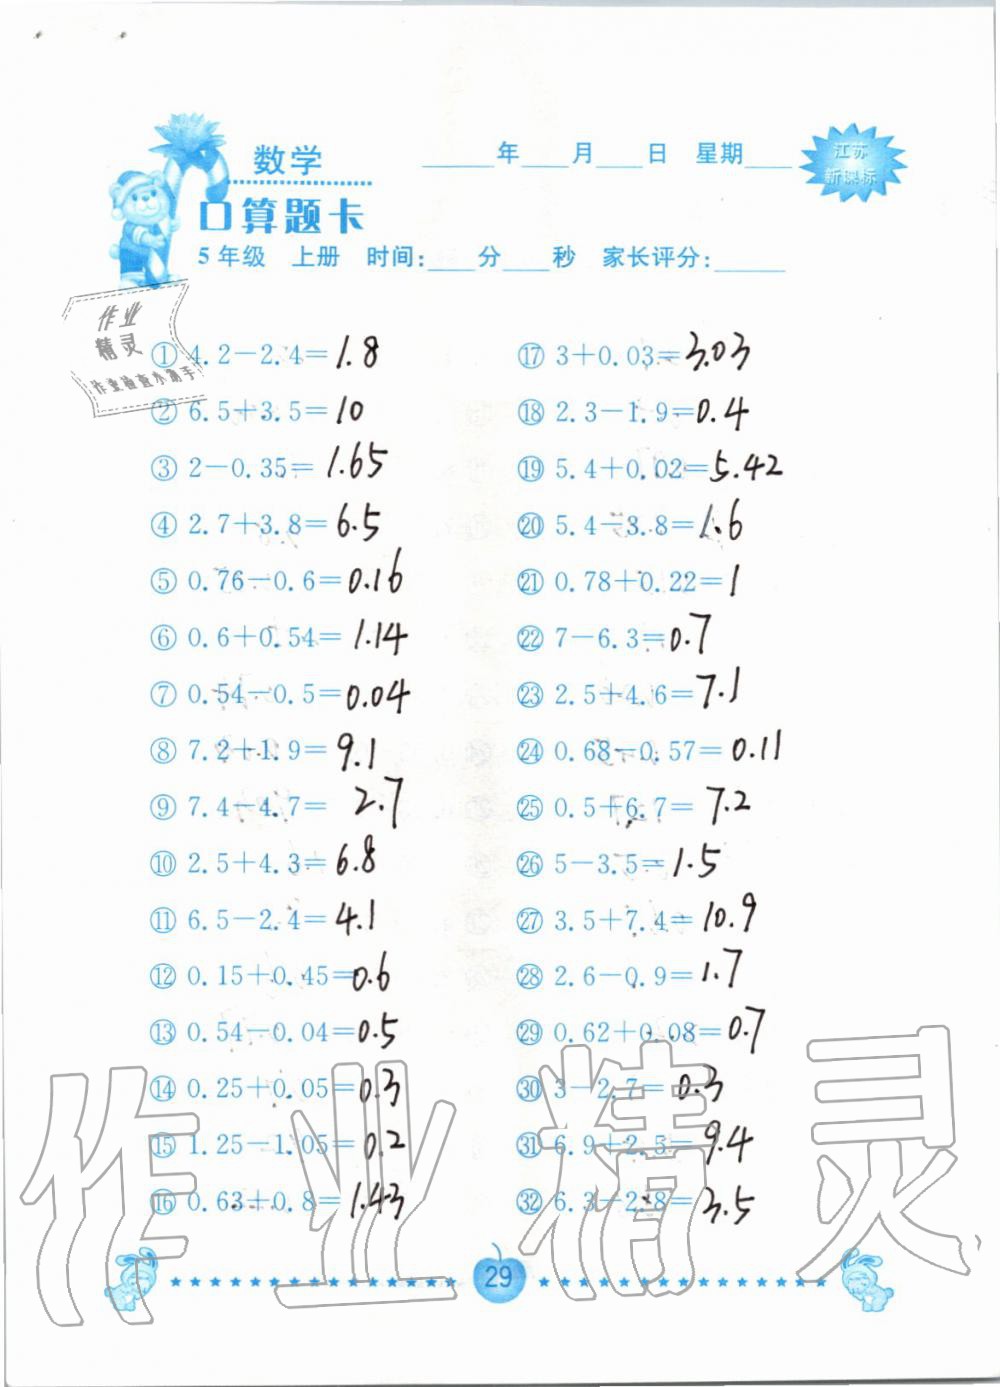 数学
____年____月____日 星期____
江苏
新课标
口算题卡
5年级 上册 时间:____分____秒 家长评分:______
作业
精灵
作业检查小助手
① 4.2－2.4＝1.8
② 6.5＋3.5＝10
③ 2－0.35＝1.65
④ 2.7＋3.8＝6.5
⑤ 0.76－0.6＝0.16
⑥ 0.6＋0.54＝1.14
⑦ 0.54－0.5＝0.04
⑧ 7.2＋1.9＝9.1
⑨ 7.4－4.7＝2.7
⑩ 2.5＋4.3＝6.8
⑪ 6.5－2.4＝4.1
⑫ 0.15＋0.45＝0.6
⑬ 0.54－0.04＝0.5
⑭ 0.25＋0.05＝0.3
⑮ 1.25－1.05＝0.2
⑯ 0.63＋0.8＝1.43
⑰ 3＋0.03＝3.03
⑱ 2.3－1.9＝0.4
⑲ 5.4＋0.02＝5.42
⑳ 5.4－3.8＝1.6
㉑ 0.78＋0.22＝1
㉒ 7－6.3＝0.7
㉓ 2.5＋4.6＝7.1
㉔ 0.68－0.57＝0.11
㉕ 0.5＋6.7＝7.2
㉖ 5－3.5＝1.5
㉗ 3.5＋7.4＝10.9
㉘ 2.6－0.9＝1.7
㉙ 0.62＋0.08＝0.7
㉚ 3－2.7＝0.3
㉛ 6.9＋2.5＝9.4
㉜ 6.3－2.8＝3.5
作业精灵
29